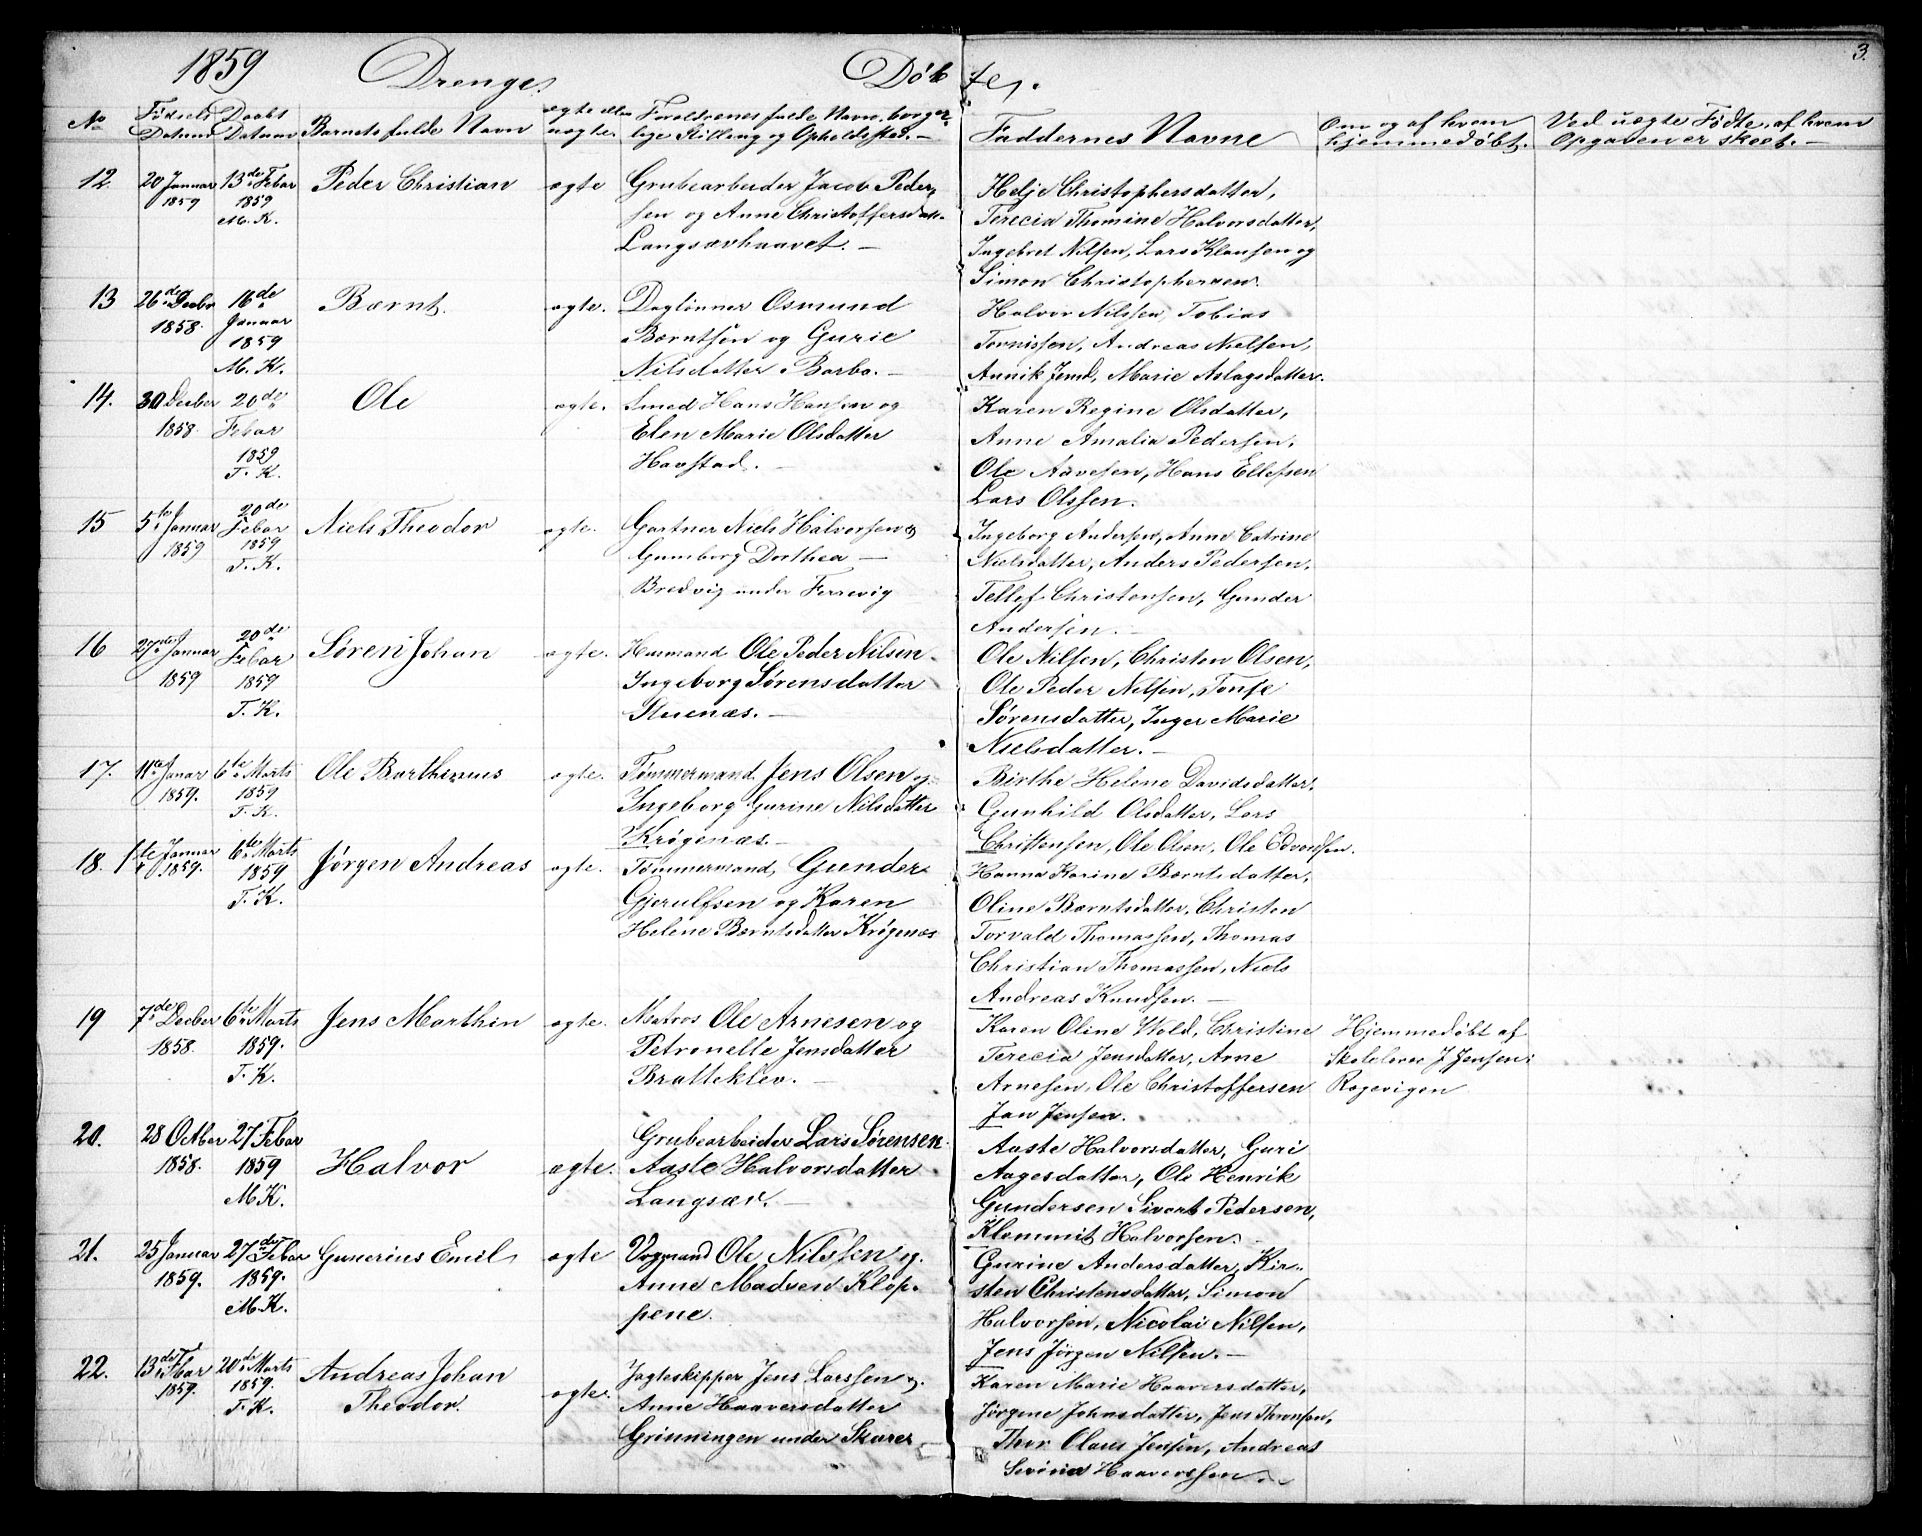 3.
1859 Drenge, Døbte.
No Fødsels Datum Daabs Datum Barnets fulde Navn ægte eller uægte. Forældrenes fulde Navn, borgerlige Stilling og Opholdssted. Faddernes Navne Om og af hvem hjemmedøbt. Ved uægte Fødte, af hvem Opgaven er skeet.
12. 20 Januar 1859 13de Febar 1859 M. K. Peder Christian ægte
Grubearbeider Jacob Peder-
sen og Anne Christoffersdatt.
Langsævhaavet. —
Helje Christophersdatter,
Terecia Thomine Halvorsdatter,
Ingebret Nilsen, Lars Klausen og
Simon Christophersen.
13 26de Decbr 1858. 16de Januar 1859 M. K. Bærnt. ægte.
Daglønner Osmund
Bærntsøn og Gurie
Nilsdatter Barbo. —
Halvor Nilssen, Tobias
Tønnissen, Andreas Nielsen,
Annik Jensd, Marie Aslagsdatter.
14. 30 Decber 1858. 20de Febar 1859 T. K. Ole ægte.
Smed Hans Hansen og
Elen Marie Olsdatter
Havstad. —
Karen Regine Olsdatter,
Anne Amalia Pedersen,
Ole Aavesen, Hans Ellefsen
Lars Olssen.
15 5te Januar 1859 20de Febar 1859 T. K. Niels Theodor ægte.
Gartner Niels Halvorsen &
Gunnborg Dorthea —
Bredvig under Ferrevig
Ingeborg Andersen, Anne Catrine
Nielsdatter, Anders Pedersen,
Tellef Christensen, Gunder
Andersen. —
16 27de Januar 1859 20de Febar 1859 T. K. Søren Johan ægte.
Husmand Ole Peder Nilsen
Ingeborg Sørensdatter
Stuenæs. —
Ole Nilsen, Christen Olsen,
Ole Peder Nilsen, Tonse
Sørensdatter, Inger Marie
Nielsdatter. —
17. 11te Janar 1859. 6te Marts 1859 T. K. Ole Barthinius ægte.
Tømmermand Jens Olsen og
Ingeborg Gurine Nilsdatter
Krøgenæs. —
Birthe Helene Davidsdatter,
Gunhild Olsdatter, Lars
Christensen, Ole Olsen, Ole Edvardsen.
18. 1te Januar 1859. 6te Marts 1859 T. K. Jørgen Andreas ægte.
Tømmermand, Gunder
Gjerulfsen og Karen
Helene Bærntsdatter Krøgenæs
Hanna Karine Bærntsdatter,
Oline Bærntsdatter, Christen
Torvald Thomassen, Thomas
Christian Thomassen, Niels
Andreas Knudsen. —
19 7de Decber 1858. 6te Marts 1859. T. K. Jens Marthin ægte.
Matros Ole Arnesen og
Petronelle Jensdatter
Bratteklev. —
Karen Oline Wold, Christine
Terecia Jensdatter, Arne
Arnesen, Ole Christoffersen
Jan Jensen.
Hjemmedøbt af
Skolelærer J Jensen
Rægevigen
20. 28 Octber 1858. 27 Febar 1859 M K. Halvor ægte.
Grubearbeider Lars Sørensen
Aaste Halvorsdatter
Langsæv. —
Aaste Halvorsdatter, Guri
Aagesdatter, Ole Henrik
Gundersen Sivert Pedersen,
Klemmit Halvorsen. —
21. 25 Januar 1859. 27de Febar 1859. M. K. Gunerius Emil ægte
Vogmand Ole Nilssen og
Anne Madsen Klop-
pene.
Gurine Andersdatter, Kir-
sten Christensdatter, Simon
Halvorsen, Nicolai Nilsen,
Jens Jørgen Nilsen. —
22. 13de Febar 1859. 20de Marts 1859. T. K. Andreas Johan
Theodor. ægte.
Jagteskipper Jens Larssen &
Anne Haaversdatter
Grinningen under Skarer
Karen Marie Haaversdatter,
Jørgene Johnsdatter, Jens Thronsen,
Thor Olaus Jensen, Andreas
Severin Haaverssen. —